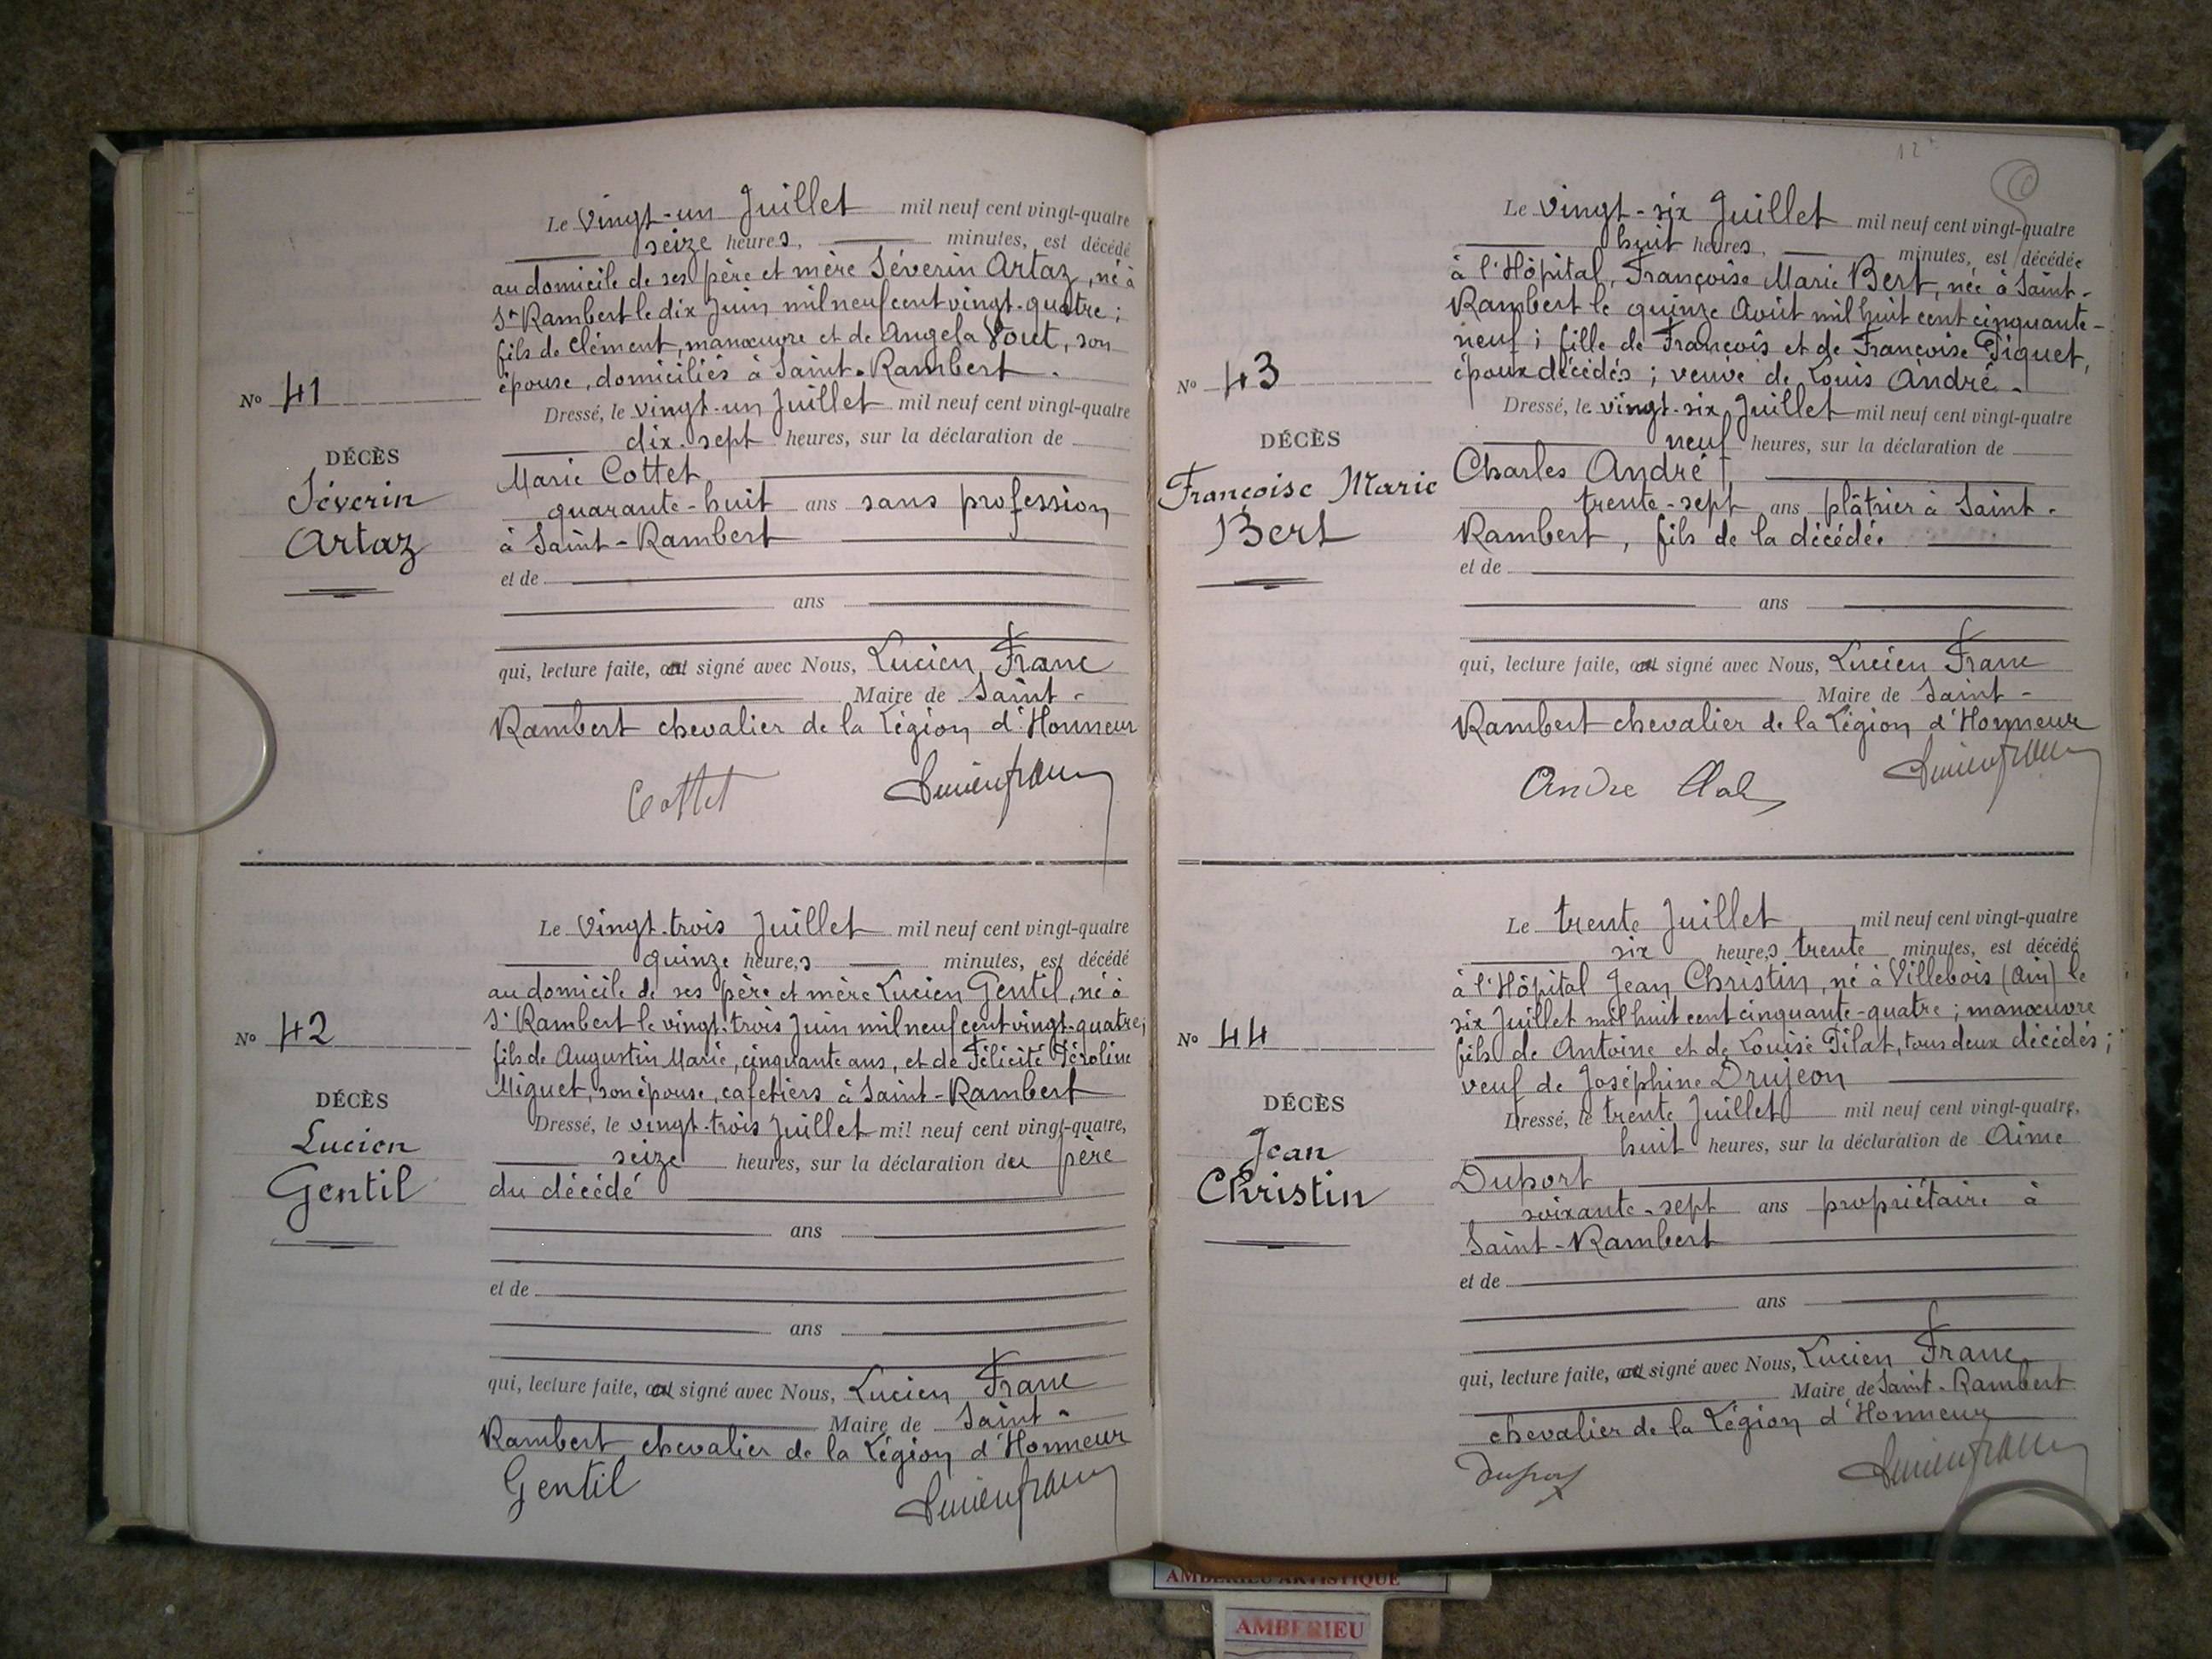 Le vingt-un Juillet mil neuf cent vingt-quatre
seize heures, minutes, est décédé
au domicile de ses père et mère Séverin Artaz, né à
St Rambert le dix Juin mil neuf cent vingt-quatre ;
fils de Clément, manœuvre et de Angela, son
épouse, domiciliés à Saint-Rambert.
No 41
Dressé, le vingt-un Juillet mil neuf cent vingt-quatre
dix-sept heures, sur la déclaration de
DÉCÈS
Séverin
Artaz
Marie Cottet
quarante-huit ans sans profession
à Saint-Rambert
et de
ans
qui, lecture faite, a signé avec Nous, Lucien Franc
Maire de Saint-
Rambert chevalier de la Légion d'Honneur
Cottet Lucien Franc
Le vingt-trois Juillet mil neuf cent vingt-quatre
quinze heures minutes, est décédé
au domicile de ses père et mère Lucien Gentil, né à
St Rambert le vingt-trois Juin mil neuf cent vingt-quatre ;
fils de Augustin Marie, cinquante ans, et de Félicité Péroline
Miguet, son épouse, cafetiers à Saint-Rambert
No 42
DÉCÈS
Lucien
Gentil
Dressé, le vingt-trois Juillet mil neuf cent vingt-quatre,
seize heures, sur la déclaration du père
du décédé
ans
et de
ans
qui, lecture faite, a signé avec Nous, Lucien Franc
Maire de Saint-
Rambert chevalier de la Légion d'Honneur
Gentil Lucien Franc
Le vingt-six Juillet mil neuf cent vingt-quatre
huit heures, minutes, est décédée
à l'Hôpital, Françoise Marie Bert, née à Saint-
Rambert le quinze Août mil huit cent cinquante-
neuf ; fille de François et de Françoise Piquet,
époux décédés ; veuve de Louis André.
No 43
DÉCÈS
Françoise Marie
Bert
Dressé, le vingt-six Juillet mil neuf cent vingt-quatre
neuf heures, sur la déclaration de
Charles André
trente-sept ans plâtrier à Saint-
Rambert, fils de la décédée
et de
ans
qui, lecture faite, a signé avec Nous, Lucien Franc
Maire de Saint-
Rambert chevalier de la Légion d'Honneur
Andre Lucien Franc
Le trente Juillet mil neuf cent vingt-quatre
six heures trente minutes, est décédé
à l'Hôpital Jean Christin, né à Villebois (Ain) le
six Juillet mil huit cent cinquante-quatre ; manœuvre
fils de Antoine et de Louise Pilat, tous deux décédés ;
veuf de Joséphine Drujeon
No 44
DÉCÈS
Jean
Christin
Dressé, le trente Juillet mil neuf cent vingt-quatre,
huit heures, sur la déclaration de Aimé
Duport
soixante-sept ans propriétaire à
Saint-Rambert
et de
ans
qui, lecture faite, a signé avec Nous, Lucien Franc
Maire de Saint-Rambert
chevalier de la Légion d'Honneur
Duport Lucien Franc
AMBERIEU ARTISTIQUE
AMBERIEU